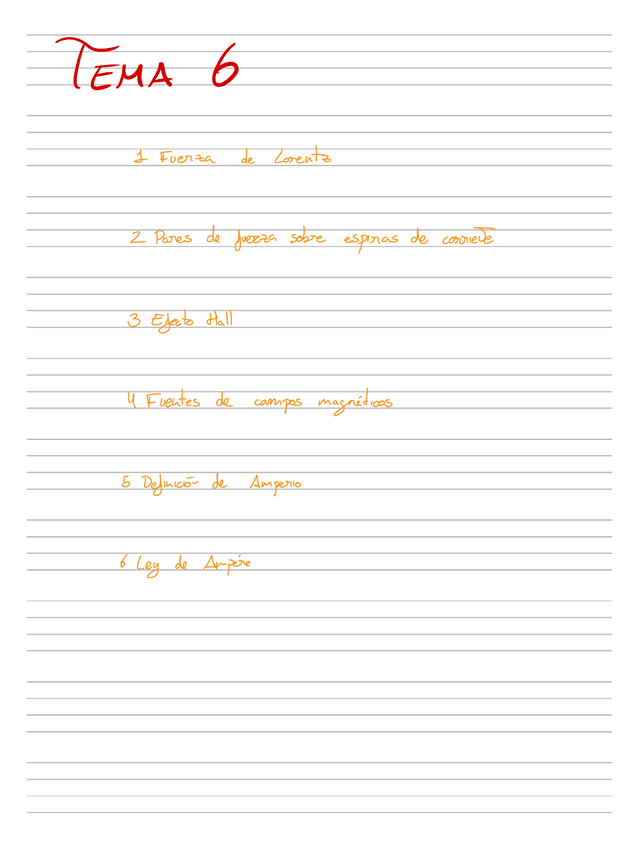 TEMA 6
1 Fuerza de Lorentz
2 Pares de fuerza sobre espiras de corriente
3 Efecto Hall
4 Fuentes de campos magnéticos
5 Definición de Amperio
6 Ley de Ampére